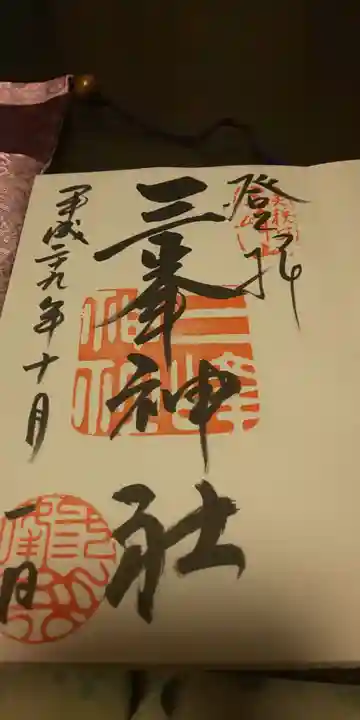 登拝
三峯神社
平成二十九年十月
一日